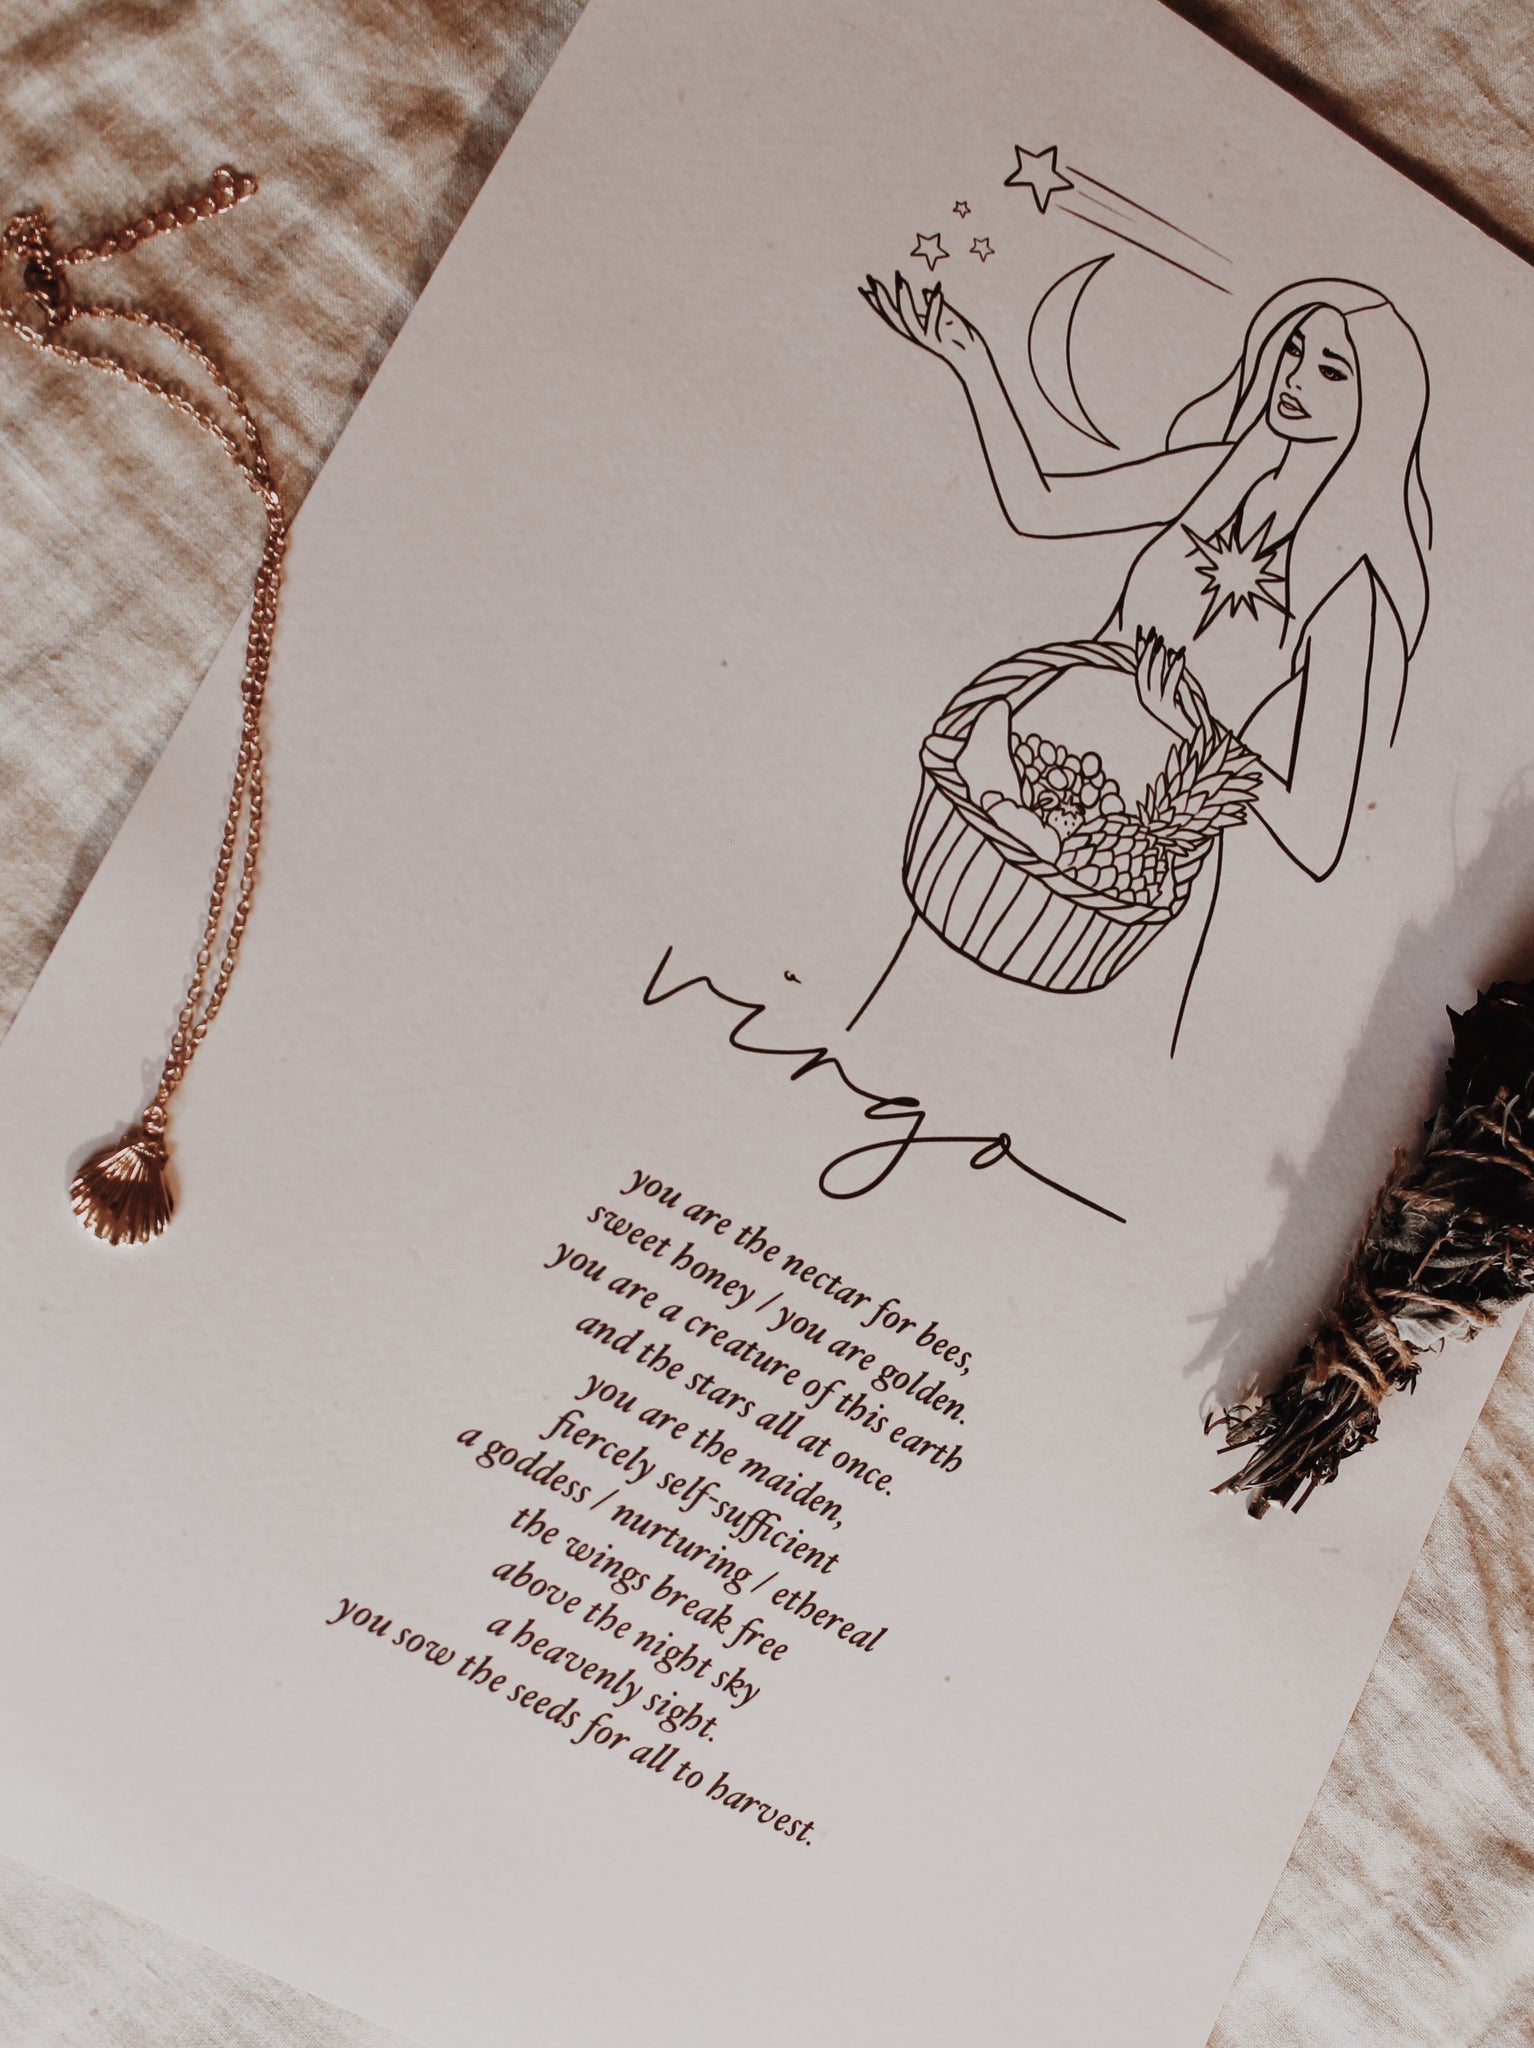 virgo
you are the nectar for bees,
sweet honey / you are golden.
you are a creature of this earth
and the stars all at once.
you are the maiden,
fiercely self-sufficient
a goddess / nurturing / ethereal
the wings break free
above the night sky
a heavenly sight.
you sow the seeds for all to harvest.